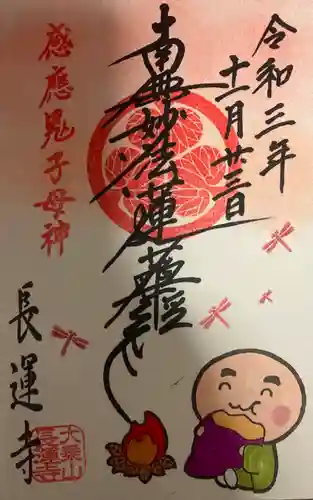 令和三年
十一月廿三日
南無妙法蓮華経
感應鬼子母神
長運寺
大乗山
長運寺